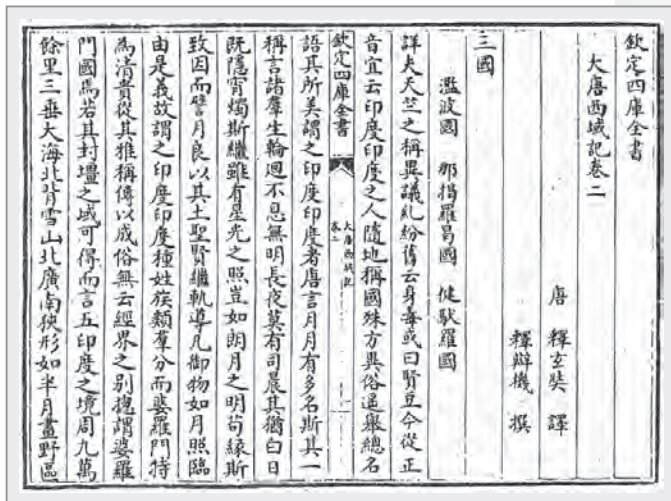 欽定四庫全書
大唐西域記卷二
唐 釋玄奘 譯
釋辯機 撰
三國
濫波國 那揭羅曷國 健馱羅國
詳夫天竺之稱異議糺紛舊云身毒或曰賢豆今從正
音宜云印度印度之人隨地稱國殊方異俗遥舉總名
欽定四庫全書
大唐西域記
卷二
語其所美謂之印度印度者唐言月月有多名斯其一
稱言諸羣生輪迴不息無明長夜莫有司晨其猶白日
既隱宵燭斯繼雖有星光之照豈如朗月之明苟緣斯
致因而譬月良以其土聖賢繼軌導凡御物如月照臨
由是義故謂之印度印度種姓族類羣分而婆羅門特
為清貴從其雅稱傳以成俗無云經界之别摠謂婆羅
門國焉若其封壇之域可得而言五印度之境周九萬
餘里三垂大海北背雪山北廣南狹形如半月畫野區